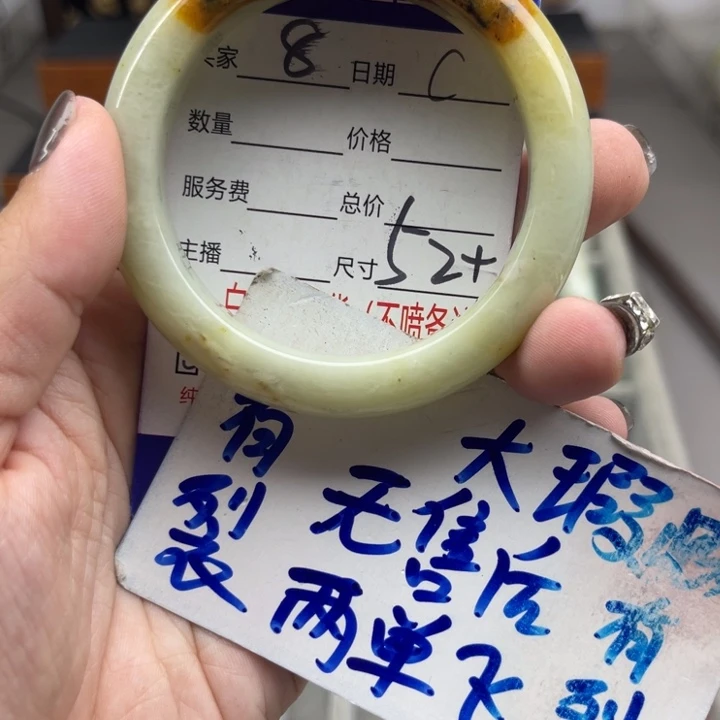 家 8 日期 C
数量 价格
服务费 总价
主播 尺寸 52+
(不喷备
纯
有裂 大瑕
无售后
两单飞
有裂